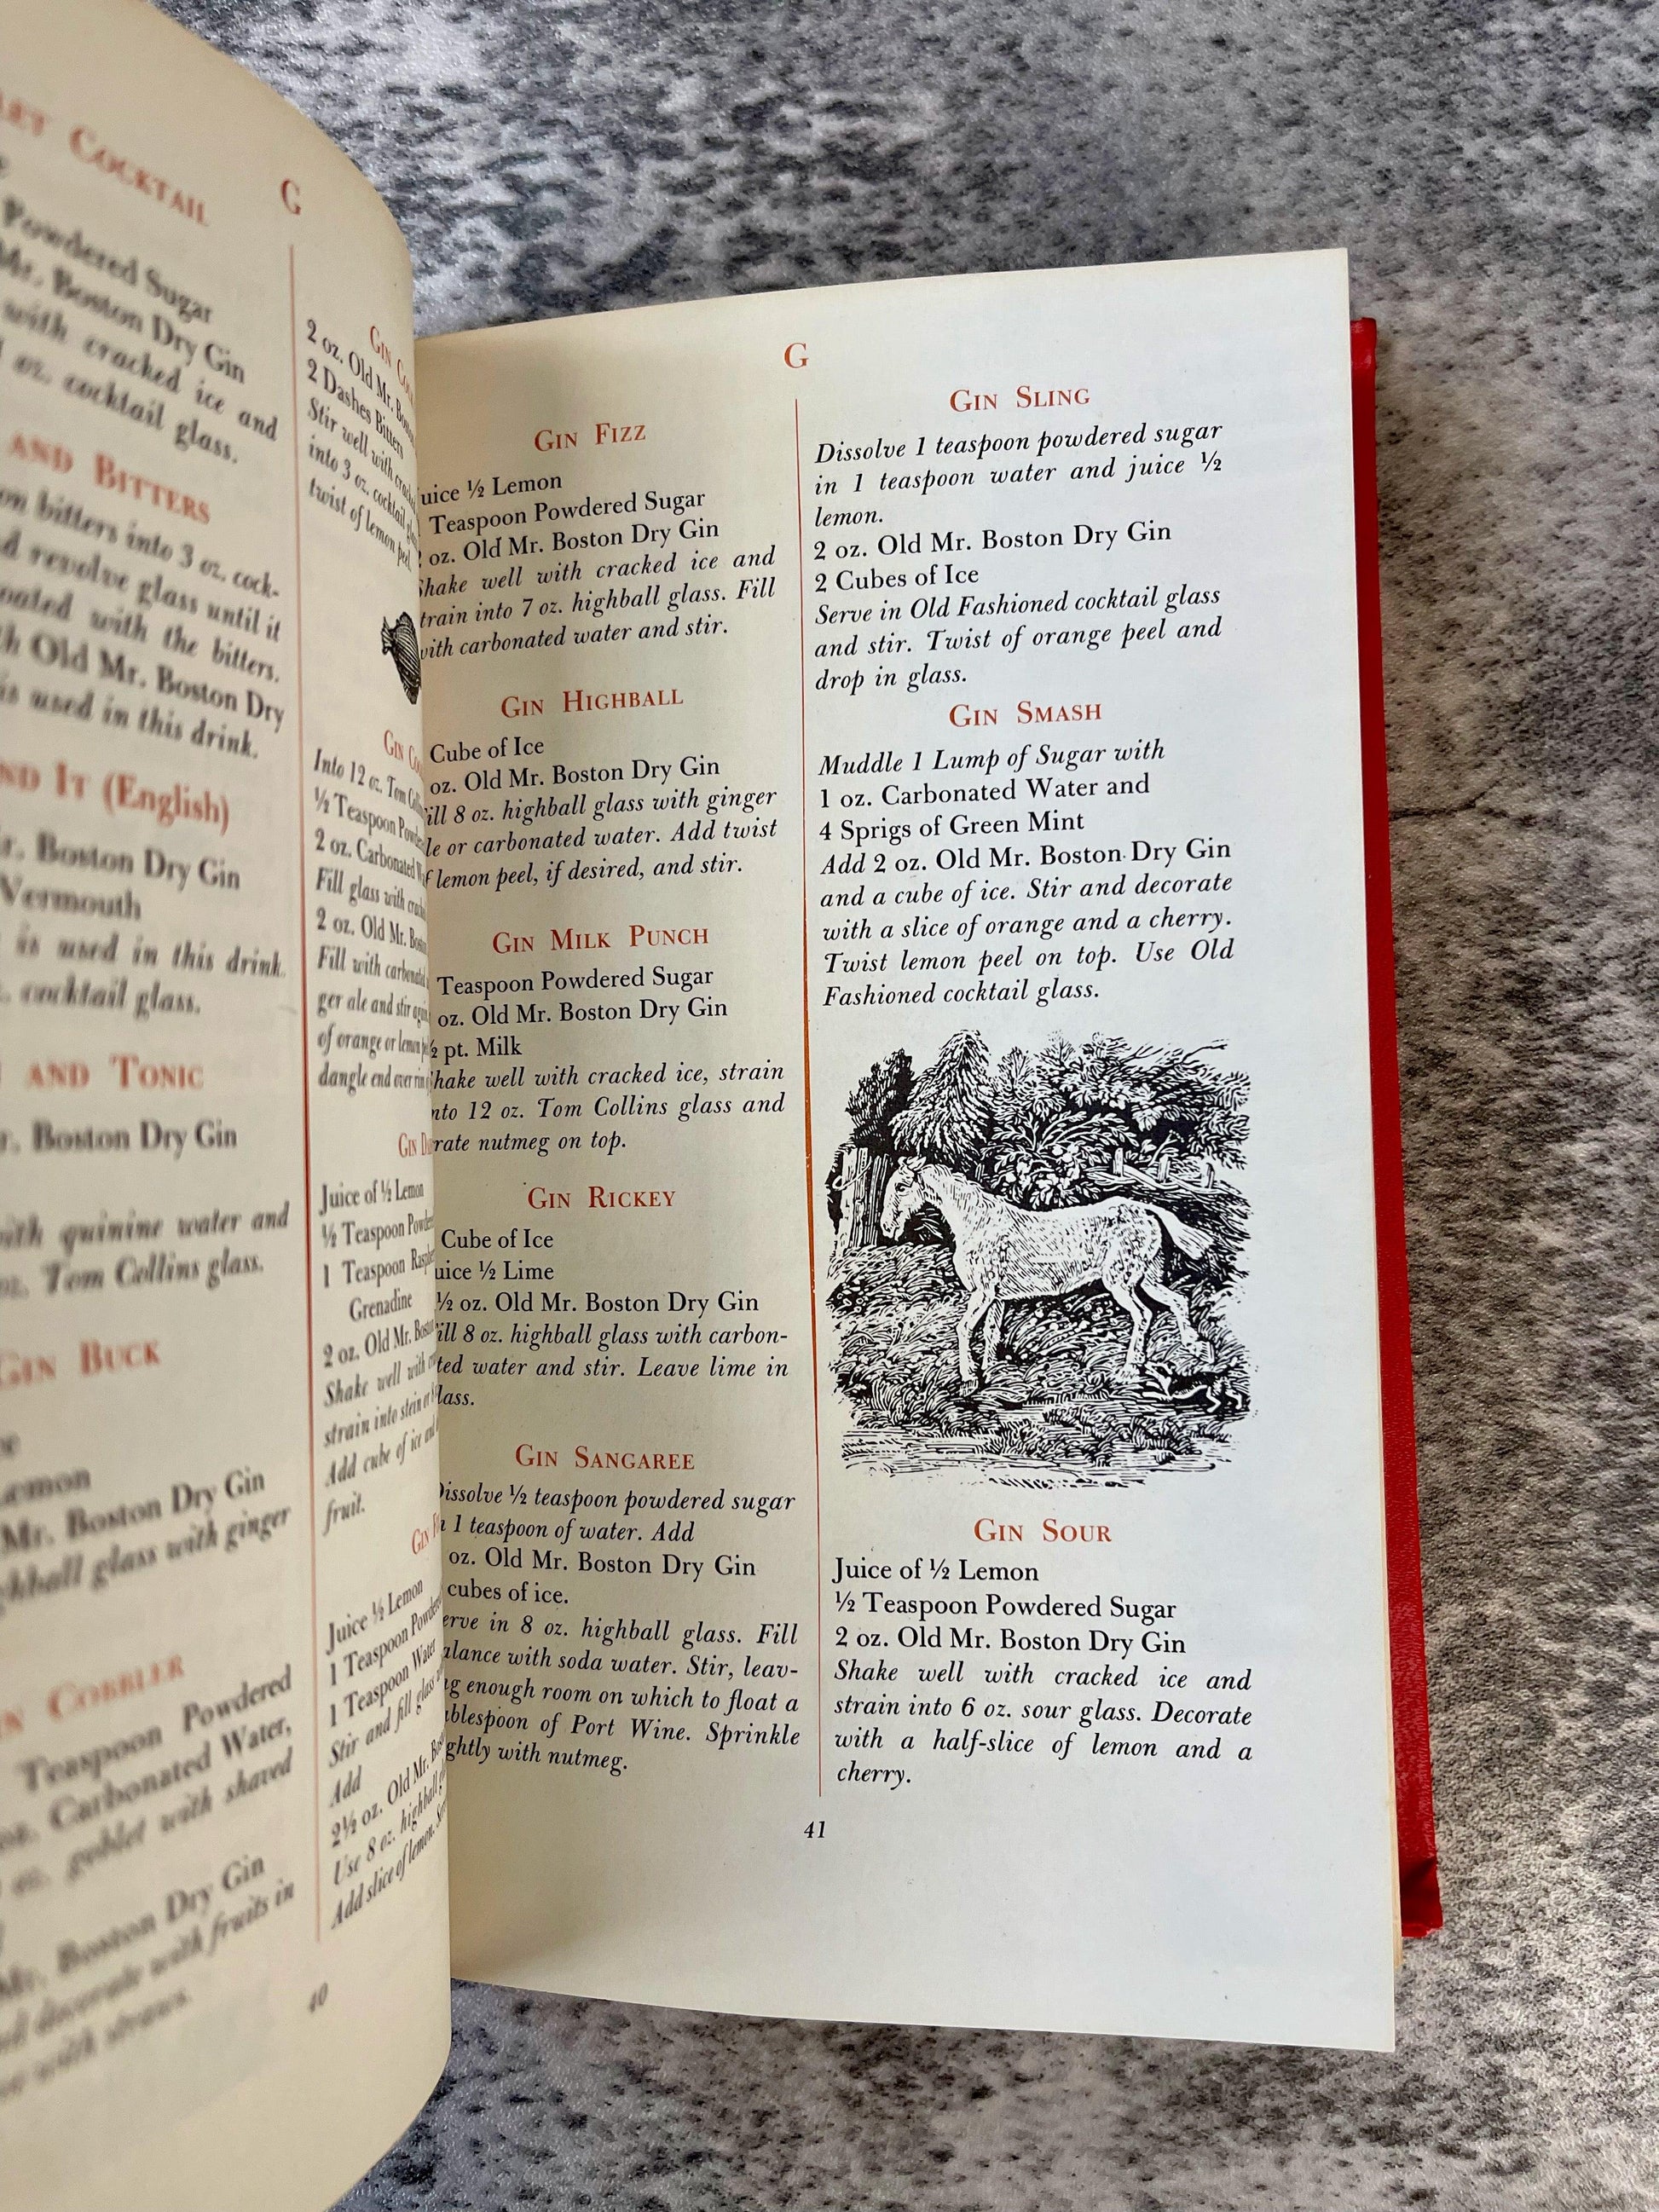 COCKTAIL
G
Powdered Sugar
Mr. Boston Dry Gin
with cracked ice and
oz. cocktail glass.
AND BITTERS
bitters into 3 oz. cock-
revolve glass until it
with the bitters.
Old Mr. Boston Dry
is used in this drink.
IT (English)
Boston Dry Gin
Vermouth
is used in this drink
cocktail glass.
AND TONIC
Boston Dry Gin
with quinine water and
oz. Tom Collins glass.
GIN BUCK
Mr. Boston Dry Gin
glass with ginger
COBBLER
Teaspoon Powdered
oz. Carbonated Water,
oz. goblet with shaved
Mr. Boston Dry Gin
decorate with fruits in
with straws.
GIN
2 oz. Old Mr.
2 Dashes Bitters
Stir well with
into 3 oz. cocktail
twist of lemon peel.
GIN
Into 12 oz. Tom
½ Teaspoon
2 oz. Carbonated
Fill glass with
2 oz. Old Mr.
Fill with
ger ale and stir
of orange or lemon
dangle end over
GIN
Juice of ½ Lemon
½ Teaspoon
1 Teaspoon
Grenadine
2 oz. Old Mr.
Shake well with
strain into stein
Add cube of ice
fruit.
GIN
Juice ½ Lemon
1 Teaspoon
1 Teaspoon Water
Stir and fill glass
Add
2½ oz. Old Mr.
Use 8 oz. highball
Add slice of lemon.
40
G
GIN FIZZ
uice ½ Lemon
Teaspoon Powdered Sugar
oz. Old Mr. Boston Dry Gin
Shake well with cracked ice and
train into 7 oz. highball glass. Fill
with carbonated water and stir.
GIN HIGHBALL
Cube of Ice
oz. Old Mr. Boston Dry Gin
ill 8 oz. highball glass with ginger
le or carbonated water. Add twist
f lemon peel, if desired, and stir.
GIN MILK PUNCH
Teaspoon Powdered Sugar
oz. Old Mr. Boston Dry Gin
½ pt. Milk
hake well with cracked ice, strain
nto 12 oz. Tom Collins glass and
rate nutmeg on top.
GIN RICKEY
Cube of Ice
uice ½ Lime
½ oz. Old Mr. Boston Dry Gin
ill 8 oz. highball glass with carbon-
ted water and stir. Leave lime in
lass.
GIN SANGAREE
Dissolve ½ teaspoon powdered sugar
n 1 teaspoon of water. Add
oz. Old Mr. Boston Dry Gin
cubes of ice.
erve in 8 oz. highball glass. Fill
alance with soda water. Stir, leav-
ng enough room on which to float a
ablespoon of Port Wine. Sprinkle
ghtly with nutmeg.
GIN SLING
Dissolve 1 teaspoon powdered sugar
in 1 teaspoon water and juice ½
lemon.
2 oz. Old Mr. Boston Dry Gin
2 Cubes of Ice
Serve in Old Fashioned cocktail glass
and stir. Twist of orange peel and
drop in glass.
GIN SMASH
Muddle 1 Lump of Sugar with
1 oz. Carbonated Water and
4 Sprigs of Green Mint
Add 2 oz. Old Mr. Boston Dry Gin
and a cube of ice. Stir and decorate
with a slice of orange and a cherry.
Twist lemon peel on top. Use Old
Fashioned cocktail glass.
GIN SOUR
Juice of ½ Lemon
½ Teaspoon Powdered Sugar
2 oz. Old Mr. Boston Dry Gin
Shake well with cracked ice and
strain into 6 oz. sour glass. Decorate
with a half-slice of lemon and a
cherry.
41